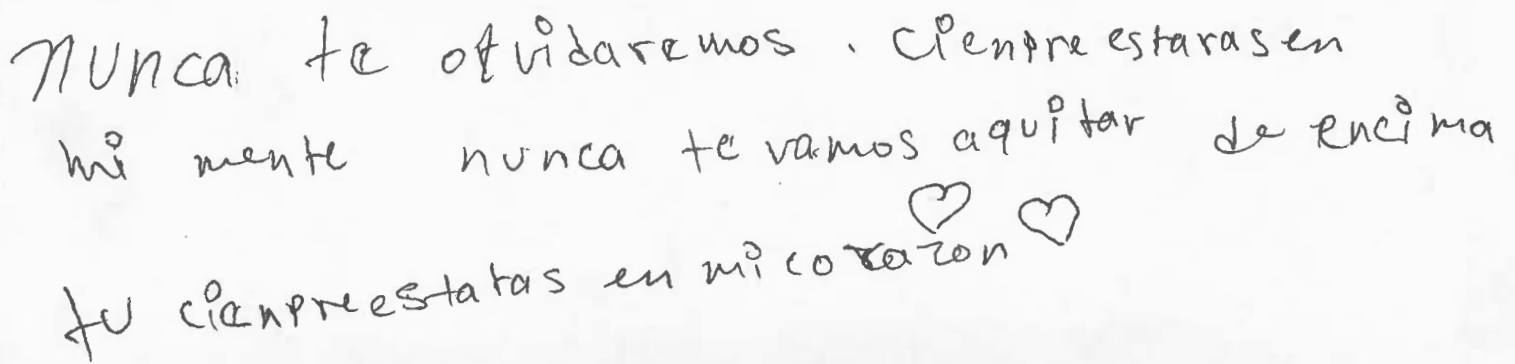 nunca te olvidaremos. cienpre estaras en
mi mente nunca te vamos aquitar de encima
tu cienpre estaras en mi corazon ♡ ♡